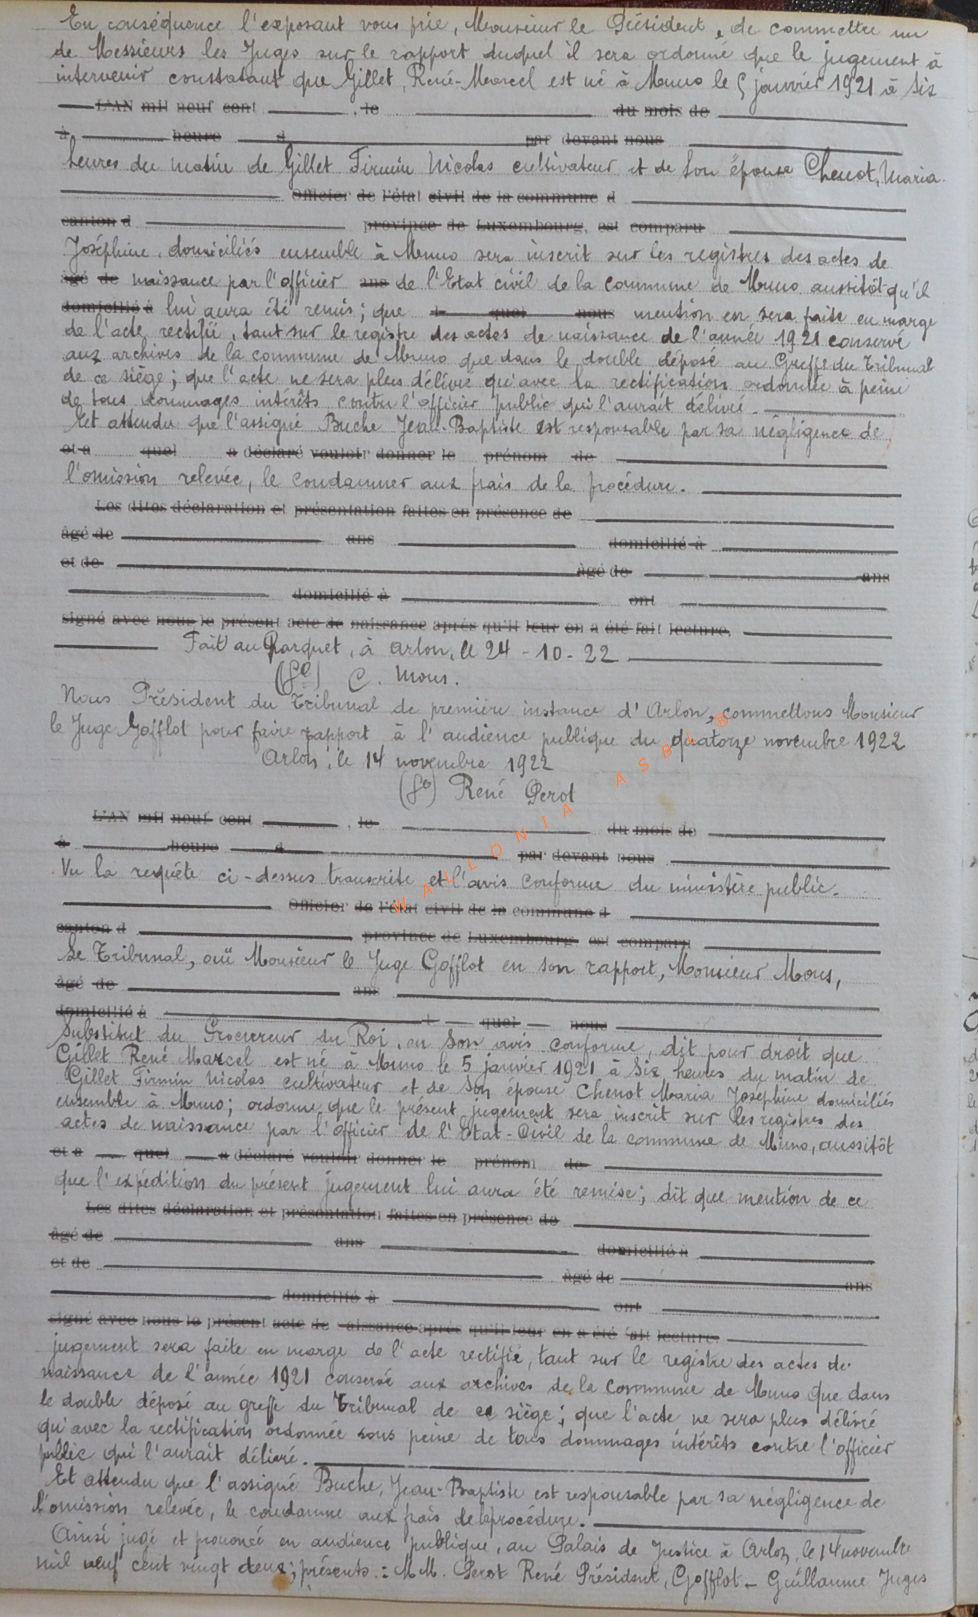 En conséquence l'exposant vous prie, Monsieur le Président, de commettre un
de Messieurs les Juges sur le rapport duquel il sera ordonné que le jugement à
intervenir constatant que Gillet, René-Marcel est né à Muno le 5 janvier 1921 à Six
L'AN mil neuf cent , le du mois de
à heure d par devant nous
heures du matin de Gillet Firmin Nicolas cultivateur et de son épouse Chenot, Maria
Officier de l'état civil de la commune d
canton d province de Luxembourg, est comparu
Joséphine, domiciliés ensemble à Muno sera inscrit sur les registres des actes de
âgé de naissance par l'officier ans de l'Etat civil de la commune de Muno aussitôt qu'il
domicilié à lui aura été remis; que l quel nous mention en sera faite en marge
de l'acte rectifié, tant sur le registre des actes de naissance de l'année 1921 conservé
aux archives de la commune de Muno que dans le double déposé au Greffe du Tribunal
de ce siège; que l'acte ne sera plus délivré qu'avec la rectification ordonnée à peine
de tous dommages intérêts contre l'officier public qui l'aurait délivré.
Et attendu que l'assigné Buche Jean-Baptiste est responsable par sa négligence de
et a quel a déclaré vouloir donner le prénom de
l'omission relevée, le condamner aux frais de la procédure.
Les dites déclaration et présentation faites en présence de
âgé de ans domicilié à
et de âgé de ans
domicilié à ont
signé avec nous le présent acte de naissance après qu'il leur en a été fait lecture,
Fait au Parquet, à Arlon, le 24-10-22
(Sé) C. Mous.
Nous Président du Tribunal de première instance d'Arlon, commettons Monsieur
le Juge Gofflot pour faire rapport à l'audience publique du quatorze novembre 1922
Arlon, le 14 novembre 1922
(Sé) René Perot
WALLONIA ASBL
L'AN mil neuf cent , le du mois de
à heure d par devant nous
Vu la requête ci-dessus transcrite et l'avis conforme du ministère public.
Officier de l'état civil de la commune d
canton d province de Luxembourg est comparu
Le Tribunal, ouï Monsieur le Juge Gofflot en son rapport, Monsieur Mous,
âgé de ans
domicilié à l quel nous
Substitut du Procureur du Roi, en son avis conforme, dit pour droit que
Gillet René Marcel est né à Muno le 5 janvier 1921 à Six heures du matin de
Gillet Firmin Nicolas cultivateur et de son épouse Chenot Maria Joséphine domiciliés
ensemble à Muno; ordonne que le présent jugement sera inscrit sur les registres des
actes de naissance par l'officier de l'Etat-Civil de la commune de Muno, aussitôt
et a quel a déclaré vouloir donner le prénom de
que l'expédition du présent jugement lui aura été remise; dit que mention de ce
Les dites déclaration et présentation faites en présence de
âgé de ans domicilié à
et de âgé de ans
domicilié à ont
signé avec nous le présent acte de naissance après qu'il leur en a été fait lecture,
jugement sera faite en marge de l'acte rectifié, tant sur le registre des actes de
naissance de l'année 1921 conservé aux archives de la commune de Muno que dans
le double déposé au greffe du Tribunal de ce siège; que l'acte ne sera plus délivré
qu'avec la rectification ordonnée sous peine de tous dommages intérêts contre l'officier
public qui l'aurait délivré.
Et attendu que l'assigné Buche, Jean-Baptiste est responsable par sa négligence de
l'omission relevée, le condamne aux frais de la procédure.
Ainsi jugé et prononcé en audience publique, au Palais de Justice à Arlon, le 14 novembre
mil neuf cent vingt deux; présents: M M. Perot René Président, Gofflot - Guillaume Juges